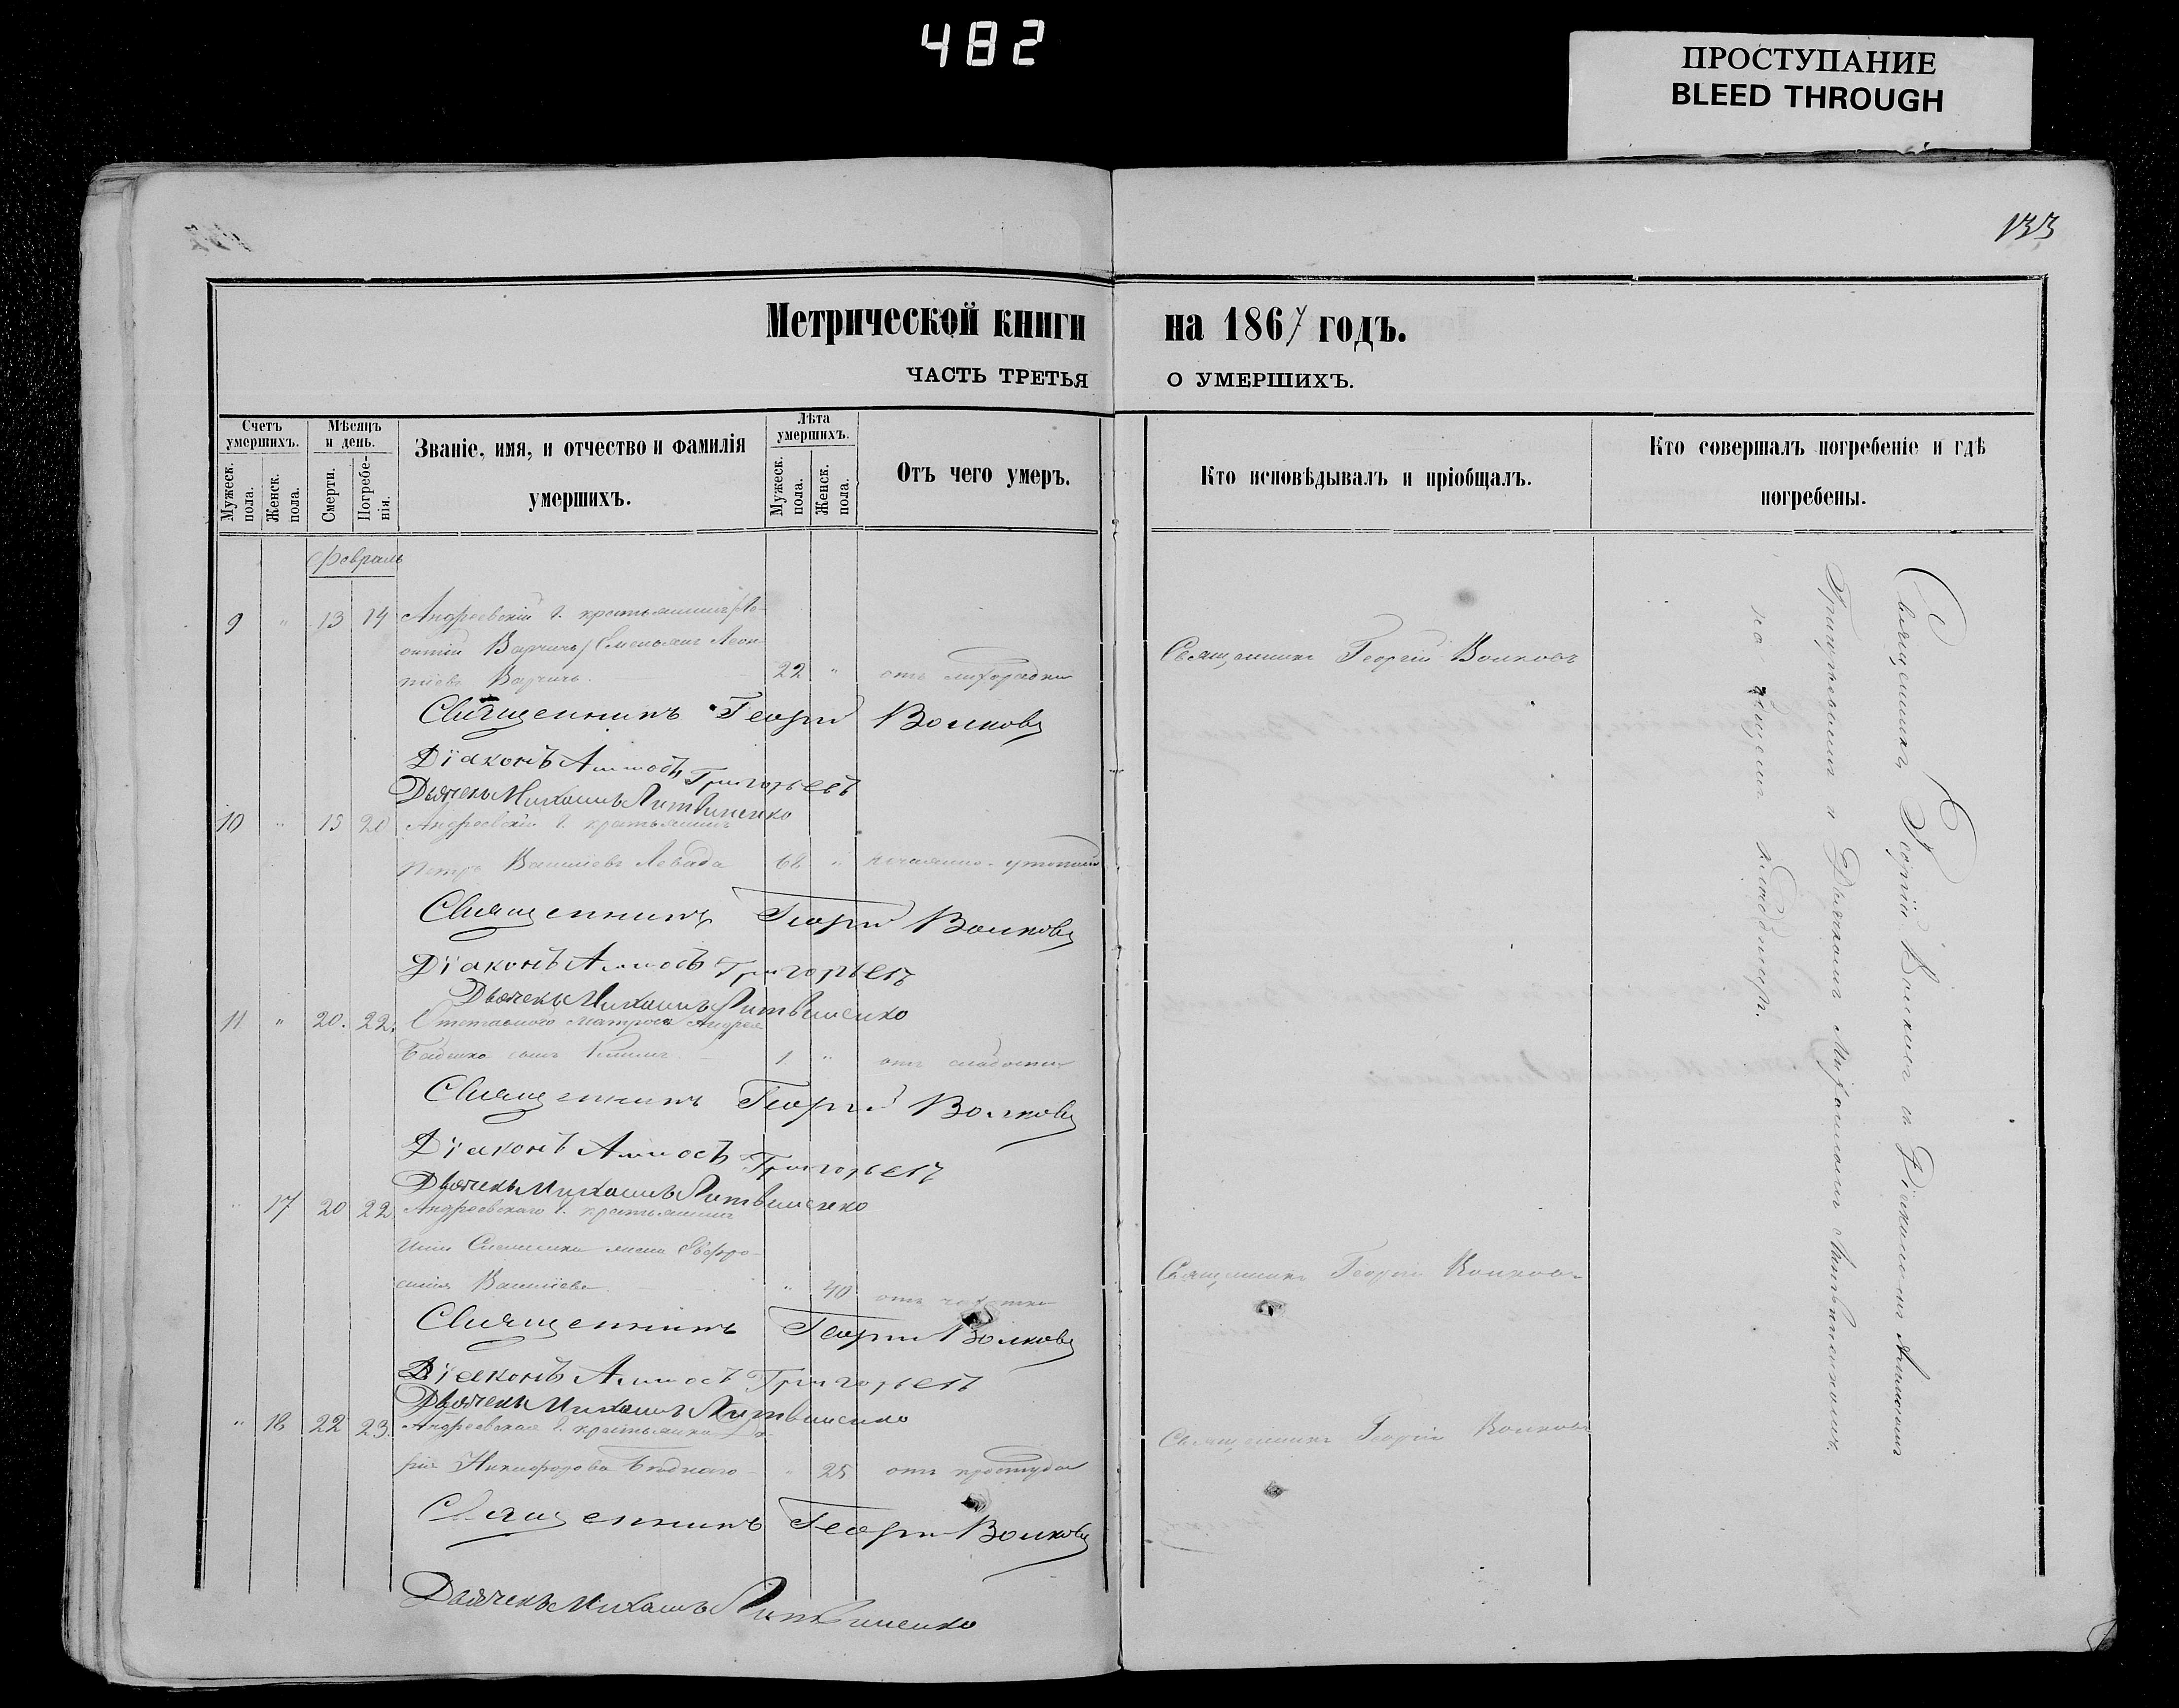 482
ПРОСТУПАНИЕ
BLEED THROUGH
133
Метрической книги на 1867 годъ.
ЧАСТЬ ТРЕТЬЯ О УМЕРШИХЪ.
Счетъ умершихъ.
Мужеск. пола.
Женск. пола.
Мѣсяцъ и день.
Смерти.
Погребе-
нія.
Званіе, имя, и отчество и фамилія
умершихъ.
Лѣта умершихъ.
Мужеск. пола.
Женск. пола.
Отъ чего умеръ.
Кто исповѣдывалъ и пріобщалъ.
Кто совершалъ погребеніе и гдѣ
погребены.
Февраль
9 " 13 14 Андреевскій крестьянинъ Ле-
онтій Варичъ Леон-
тіевъ Варичъ. 22 " отъ лихорадки Священникъ Георгій Волковъ
Священникъ Георгій Волковъ
Діаконъ Аммосъ Григорьевъ
Дьячекъ Михаилъ Литвиненко
10 " 15 20 Андреевскій крестьянинъ
Петръ Василіевъ Левада "
Священникъ Георгій Волковъ
Діаконъ Аммосъ Григорьевъ
Дьячекъ Михаилъ Литвиненко
11 " 20. 22. Отставного матроса Андрея
сынъ 1. " отъ слабости
Священникъ Георгій Волковъ
Діаконъ Аммосъ Григорьевъ
Дьячекъ Михаилъ Литвиненко
" 17 20 22 Андреевскаго крестьянина
жена Евфро-
синія Василіева " 40 отъ чахотки Священникъ Георгій Волковъ
Священникъ Георгій Волковъ
Діаконъ Аммосъ Григорьевъ
Дьячекъ Михаилъ Литвиненко
" 18 22 23. Андреевская крестьянка
Никифорова " 25 отъ простуды Священникъ Георгій Волковъ
Священникъ Георгій Волковъ
Дьячекъ Михаилъ Литвиненко
Священникъ Георгій Волковъ съ Діакономъ Аммосомъ
Григорьевымъ и Дьячкомъ Михаиломъ Литвиненкомъ
на общемъ кладбищѣ.